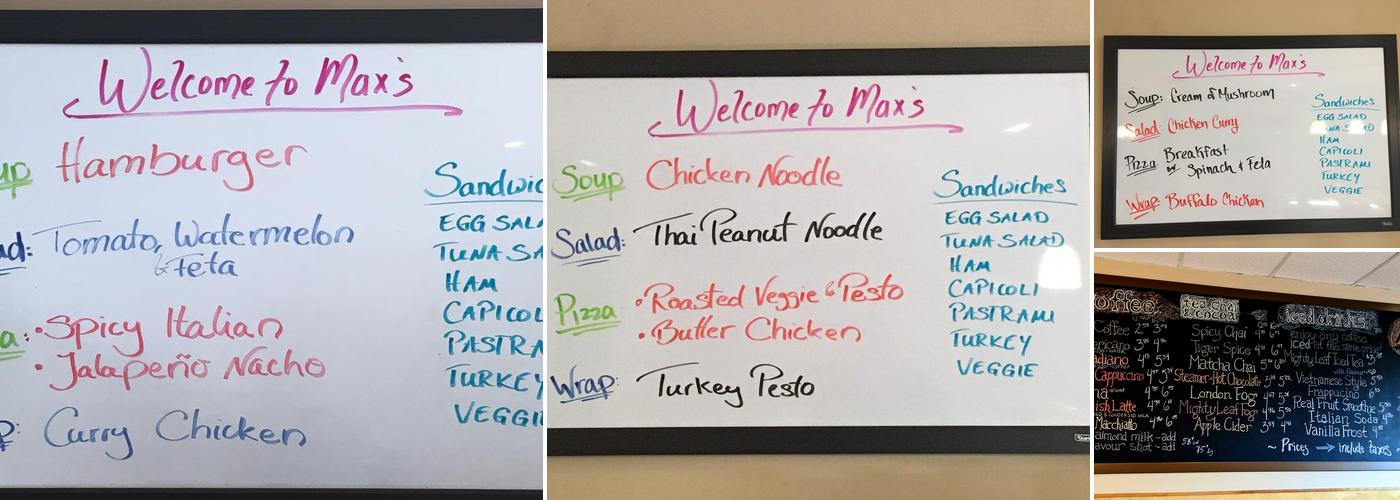 Welcome to Max's
up Hamburger
ad: Tomato, Watermelon
& Feta
a: • Spicy Italian
• Jalapeño Nacho
p: Curry Chicken
Sandwic
EGG SALA
TUNA SA
HAM
CAPICOL
PASTRA
TURKEY
VEGGI
Welcome to Max's
Soup Chicken Noodle
Salad: Thai Peanut Noodle
Pizza • Roasted Veggie & Pesto
• Butter Chicken
Wrap: Turkey Pesto
Sandwiches
EGG SALAD
TUNA SALAD
HAM
CAPICOLI
PASTRAMI
TURKEY
VEGGIE
Welcome to Max's
Soup: Cream of Mushroom
Salad: Chicken Curry
Pizza: Breakfast
or Spinach & Feta
Wrap: Buffalo Chicken
Sandwiches
EGG SALAD
HAM
CAPICOLI
PASTRAMI
TURKEY
VEGGIE
offee
Coffee
ricano
adiano
Cappuccino
na
ish Latte
Macchiato
almond milk - add
avour shot - add
tea chai
& cocoa
Spicy Chai
Tiger Spice
Matcha Chai
Steamer-Hot Chocolate
London Fog
Mighty Leaf Fog
Apple Cider
iced drinks
enjoy any coffee
iced at the same price!
Mighty Leaf Iced Tea
Vietnamese Style
Frappuccino
Real Fruit Smoothie
Italian Soda
Vanilla Frost
~ Prices → include taxes